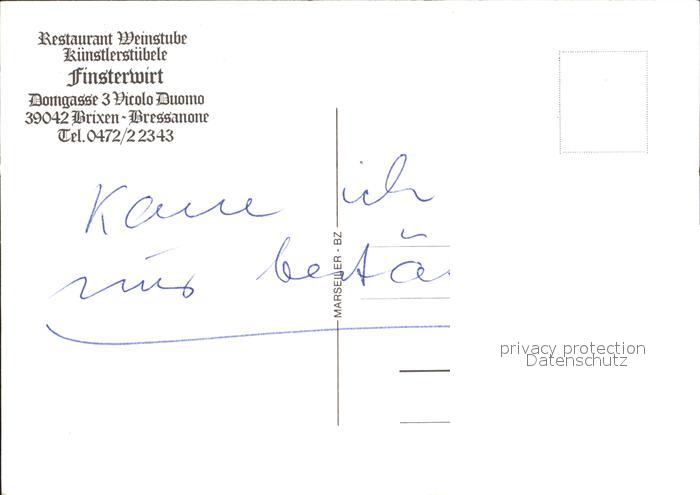 Restaurant Weinstube
Künstlerstübele
Finsterwirt
Domgasse 3 Vicolo Duomo
39042 Brixen - Bressanone
Tel. 0472/2 23 43
Kann ich
nur bestä
MARSEILER - BZ
privacy protection
Datenschutz